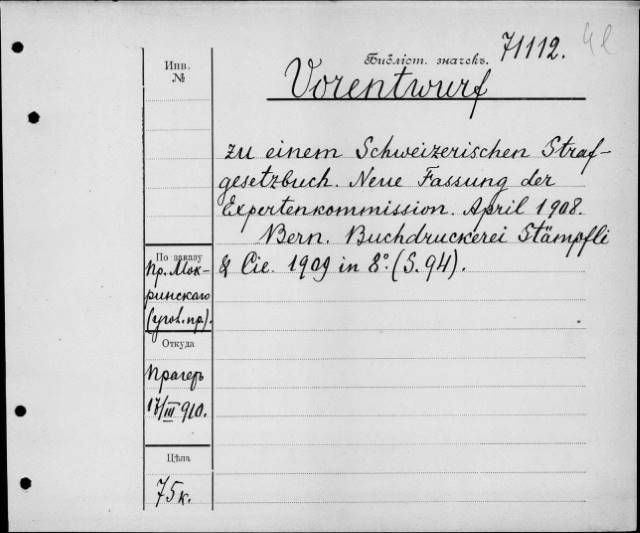 Инв.
№
Библіот. значекъ. 71112.
Vorentwurf
zu einem Schweizerischen Straf-
gesetzbuch. Neue Fassung der
Expertenkommission. April 1908.
Bern. Buchdruckerei Stämpfli
& Cie. 1909 in 8°. (S. 94).
По заказу
Пр. Мок-
ринскаго
(угол. пр).
Откуда
Прагеръ
17/III 910.
Цѣна
75 к.